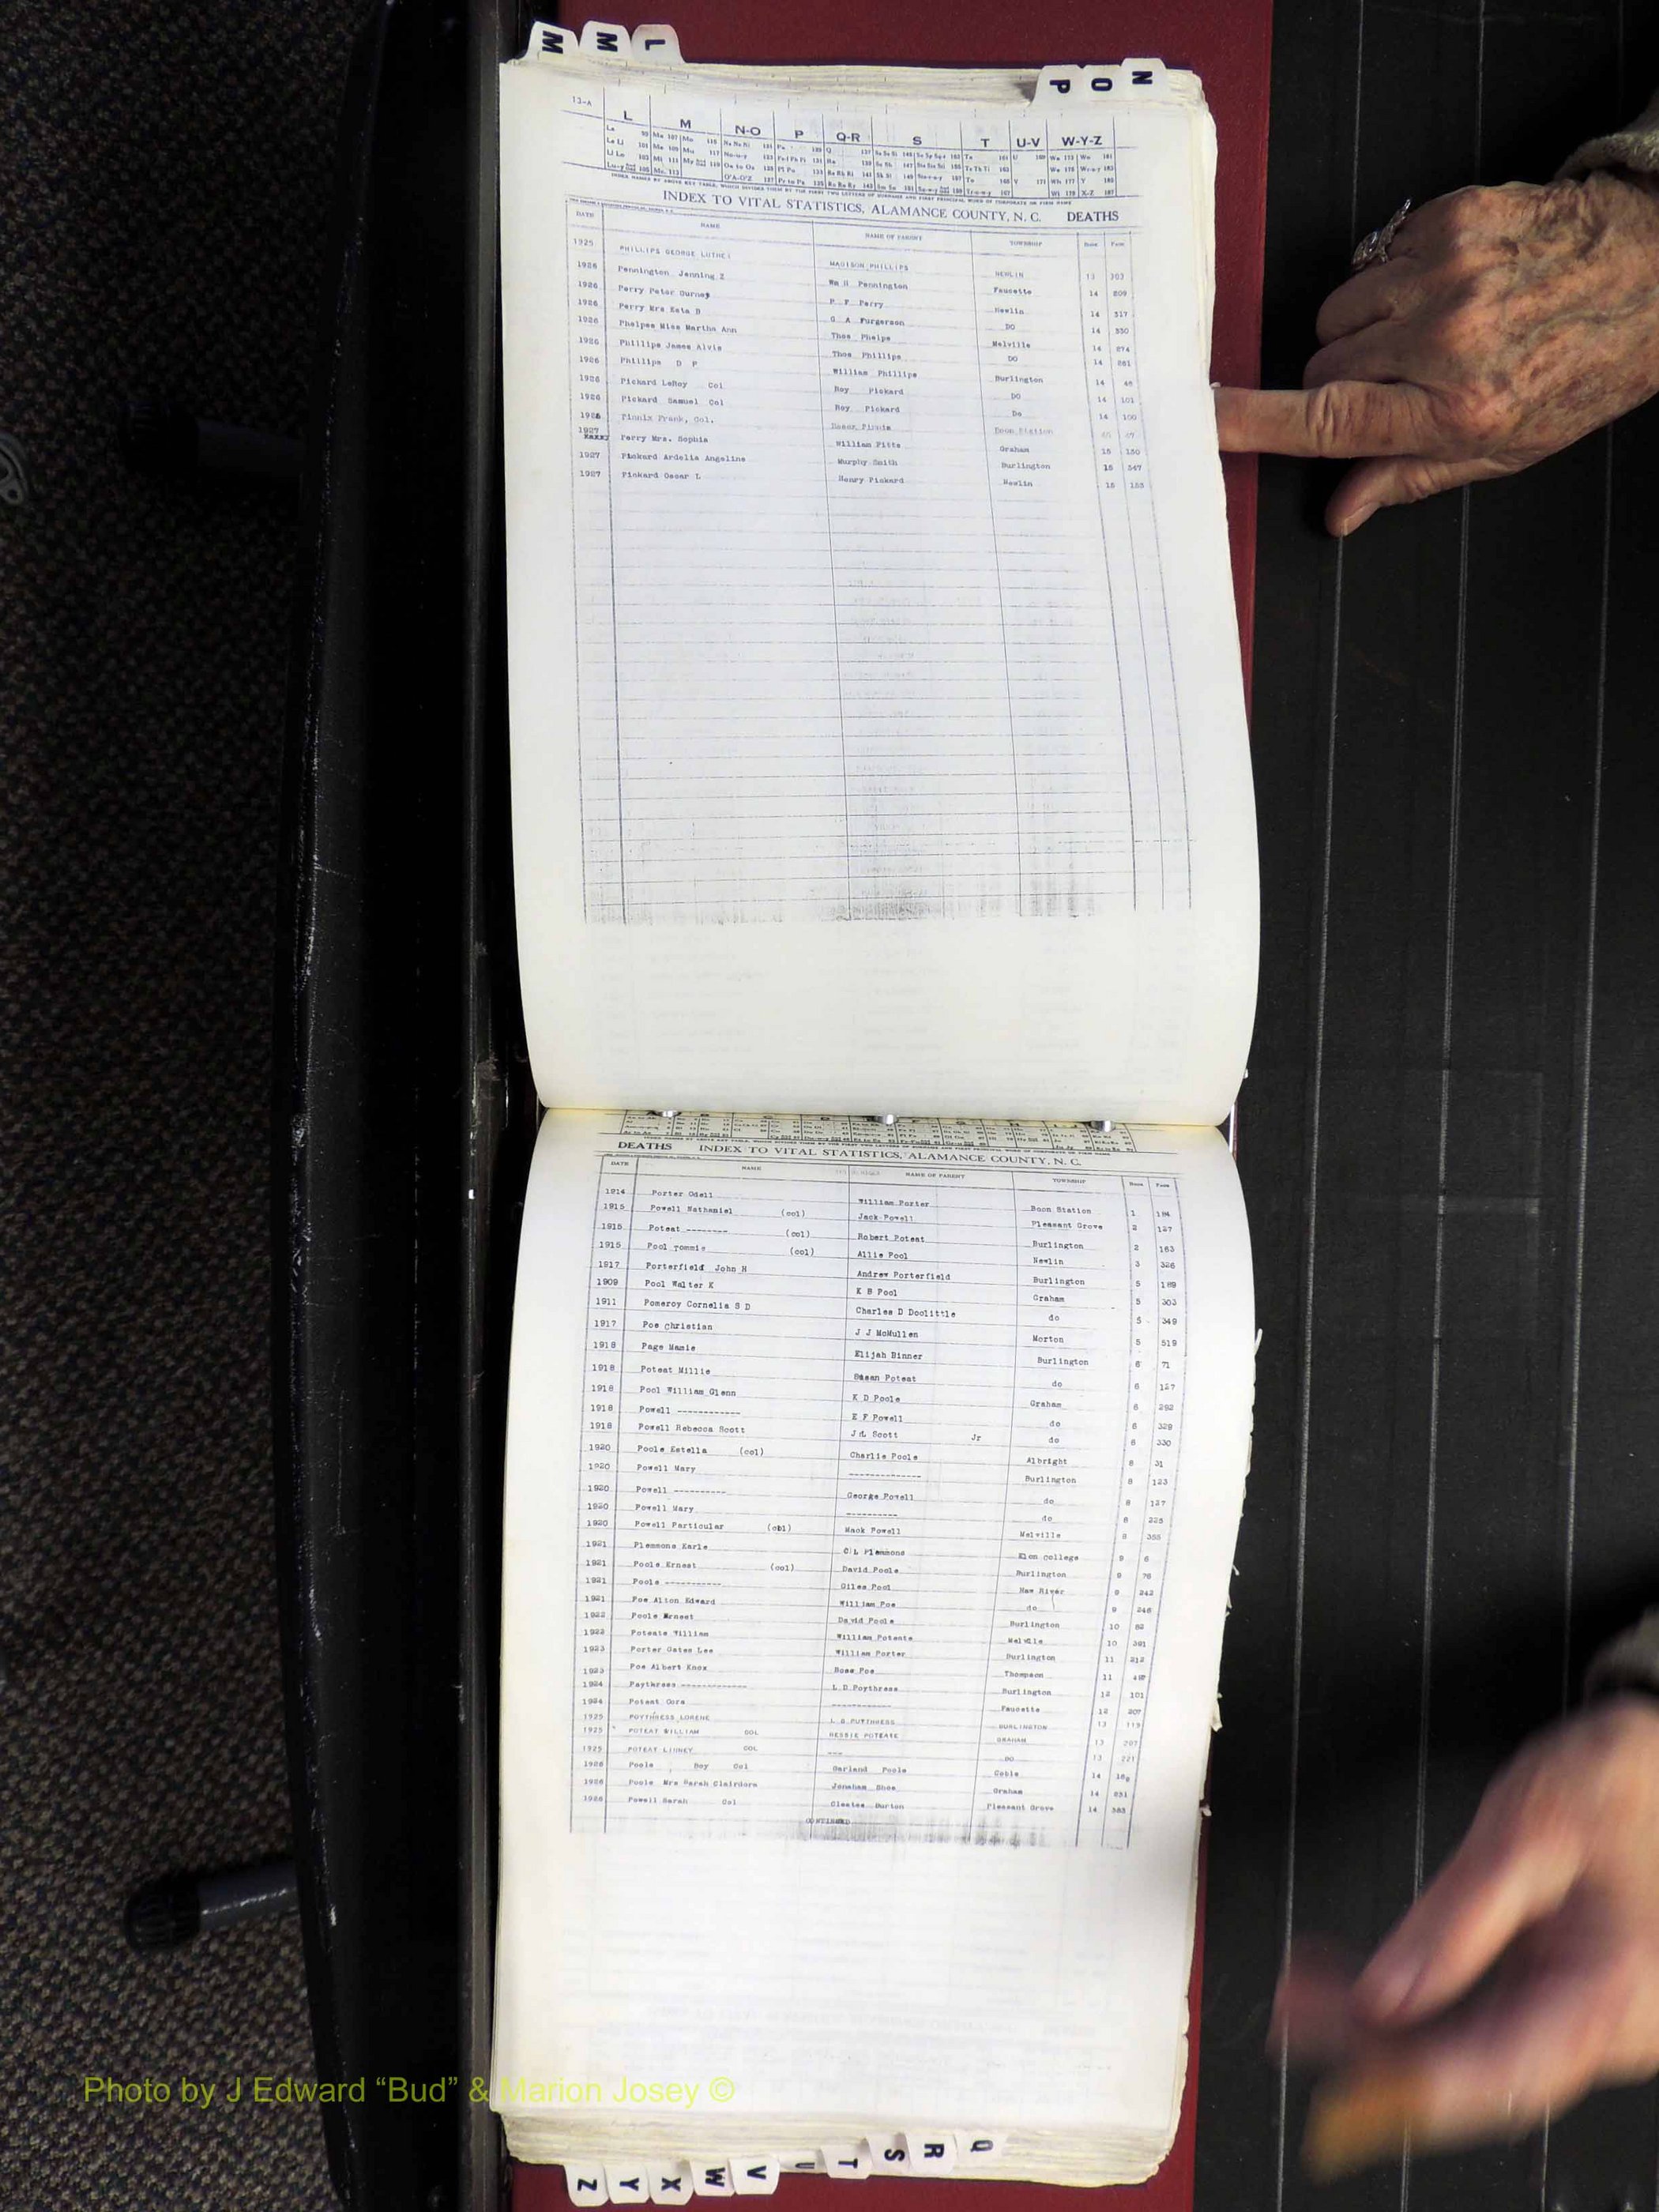 M M L
N O P
13-A
L M N-O P Q-R S T U-V W-Y-Z
INDEX TO VITAL STATISTICS, ALAMANCE COUNTY, N. C. DEATHS
DATE NAME NAME OF PARENT TOWNSHIP BOOK PAGE
1925 PHILLIPS GEORGE LUTHER MADISON PHILLIPS NEWLIN 13 303
1926 Pennington Jenning Z Wm H Pennington Faucette 14 209
1926 Perry Peter Gurney P F Perry Newlin 14 317
1926 Perry Mrs Eata D G A Furgerson DO 14 330
1926 Phelpes Miss Martha Ann Thos Phelps Melville 14 274
1926 Phillips James Alvis Thos Phillips DO 14 281
1926 Phillips D P William Phillips Burlington 14 48
1926 Pickard LeRoy Col Roy Pickard DO 14 101
1926 Pickard Samuel Col Roy Pickard Do 14 100
1926 Pinnix Frank, Col. Pinnix Boon Station
1927 Perry Mrs. Sophia William Pitts Graham 15 150
1927 Pickard Ardelia Angeline Murphy Smith Burlington 15 347
1927 Pickard Oscar L Henry Pickard Newlin 15 155
DEATHS INDEX TO VITAL STATISTICS, ALAMANCE COUNTY, N. C.
DATE NAME NAME OF PARENT TOWNSHIP BOOK PAGE
1914 Porter Odell William Porter Boon Station 1 184
1915 Powell Nathaniel (col) Jack Powell Pleasant Grove 2 127
1915 Poteat -------- (col) Robert Poteat Burlington 2 163
1915 Pool Tommie (col) Allie Pool Newlin 3 326
1917 Porterfield John H Andrew Porterfield Burlington 5 189
1909 Pool Walter K K B Pool Graham 5 303
1911 Pomeroy Cornelia S D Charles D Doolittle do 5 349
1917 Poe Christian J J McMullen Morton 5 519
1918 Page Mamie Elijah Binner Burlington 6 71
1918 Poteat Millie Susan Poteat do 6 127
1918 Pool William Glenn K D Poole Graham 6 292
1918 Powell ------------ E F Powell do 6 329
1918 Powell Rebecca Scott J L Scott Jr do 6 330
1920 Poole Estella (col) Charlie Poole Albright 8 31
1920 Powell Mary -------------- Burlington 8 123
1920 Powell ---------- George Powell do 8 127
1920 Powell Mary ---------- do 8 225
1920 Powell Particular (col) Mack Powell Melville 8 355
1921 Plemmons Earle C L Plemmons Elon college 9 6
1921 Poole Ernest (col) David Poole Burlington 9 76
1921 Poole ----------- Giles Pool Haw River 9 242
1921 Poe Alton Edward William Poe do 9 246
1922 Poole Ernset David Poole Burlington 10 82
1922 Poteate William William Poteate Melville 10 391
1923 Porter Gates Lee William Porter Burlington 11 212
1923 Poe Albert Knox Bose Poe Thompson 11
1924 Paythress ------------- L D Poythress Burlington 12 101
1924 Poteat Cora ------------ Faucette 12 207
1925 POYTHRESS LORENE L G POYTHRESS BURLINGTON 13 119
1925 POTEAT WILLIAM COL BESSIE POTEATE GRAHAM 13 207
1925 POTEAT LINNEY COL --- DO 13 221
1926 Poole Boy Col Garland Poole Coble 14
1926 Poole Mrs Sarah Clairdora Jonaham Shoe Graham 14 231
1926 Powell Sarah Col Cleatee Burton Pleasant Grove 14 383
CONTINUED
Photo by J Edward “Bud” & Marion Josey ©
Z Y X W V U T S R Q